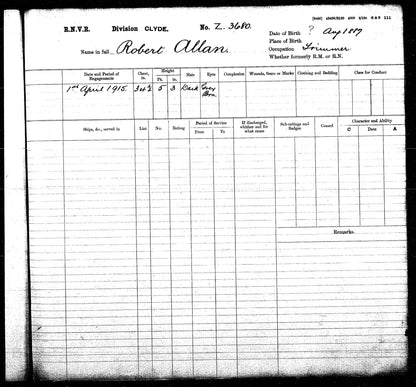 R.N.V.R. Division CLYDE. No. Z. 3680.
Name in full Robert Allan.
Date of Birth ? Aug 1887
Place of Birth
Occupation Trimmer
Whether formerly R.M. or R.N.
Date and Period of Engagements
Chest, in.
Height
Ft. in.
Hair
Eyes
Complexion
Wounds, Scars or Marks
Clothing and Bedding
Class for Conduct
1st April 1915. 5 3 Dark Grey
Ships, &c., served in
List
No.
Rating
Period of Service
From To
If discharged, whither and for what cause
Sub-ratings and Badges
Character and Ability
C Date A
Remarks.